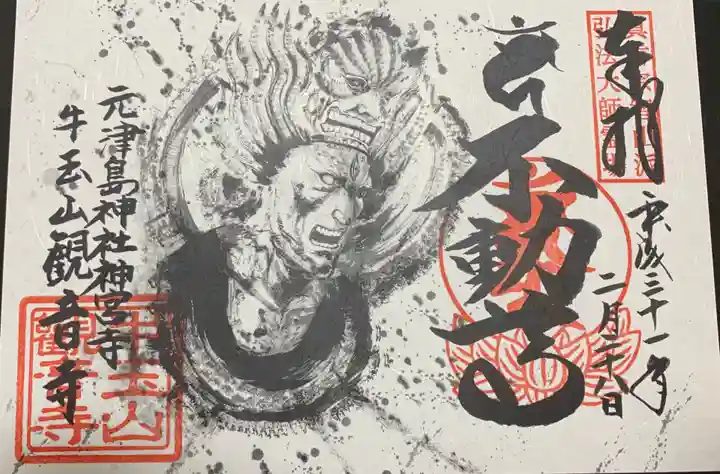 奉拝
平成三十一年
二月二十八日
不動尊
元津島神社神宮寺
牛玉山観音寺
弘法大師霊場
牛玉山
観音寺